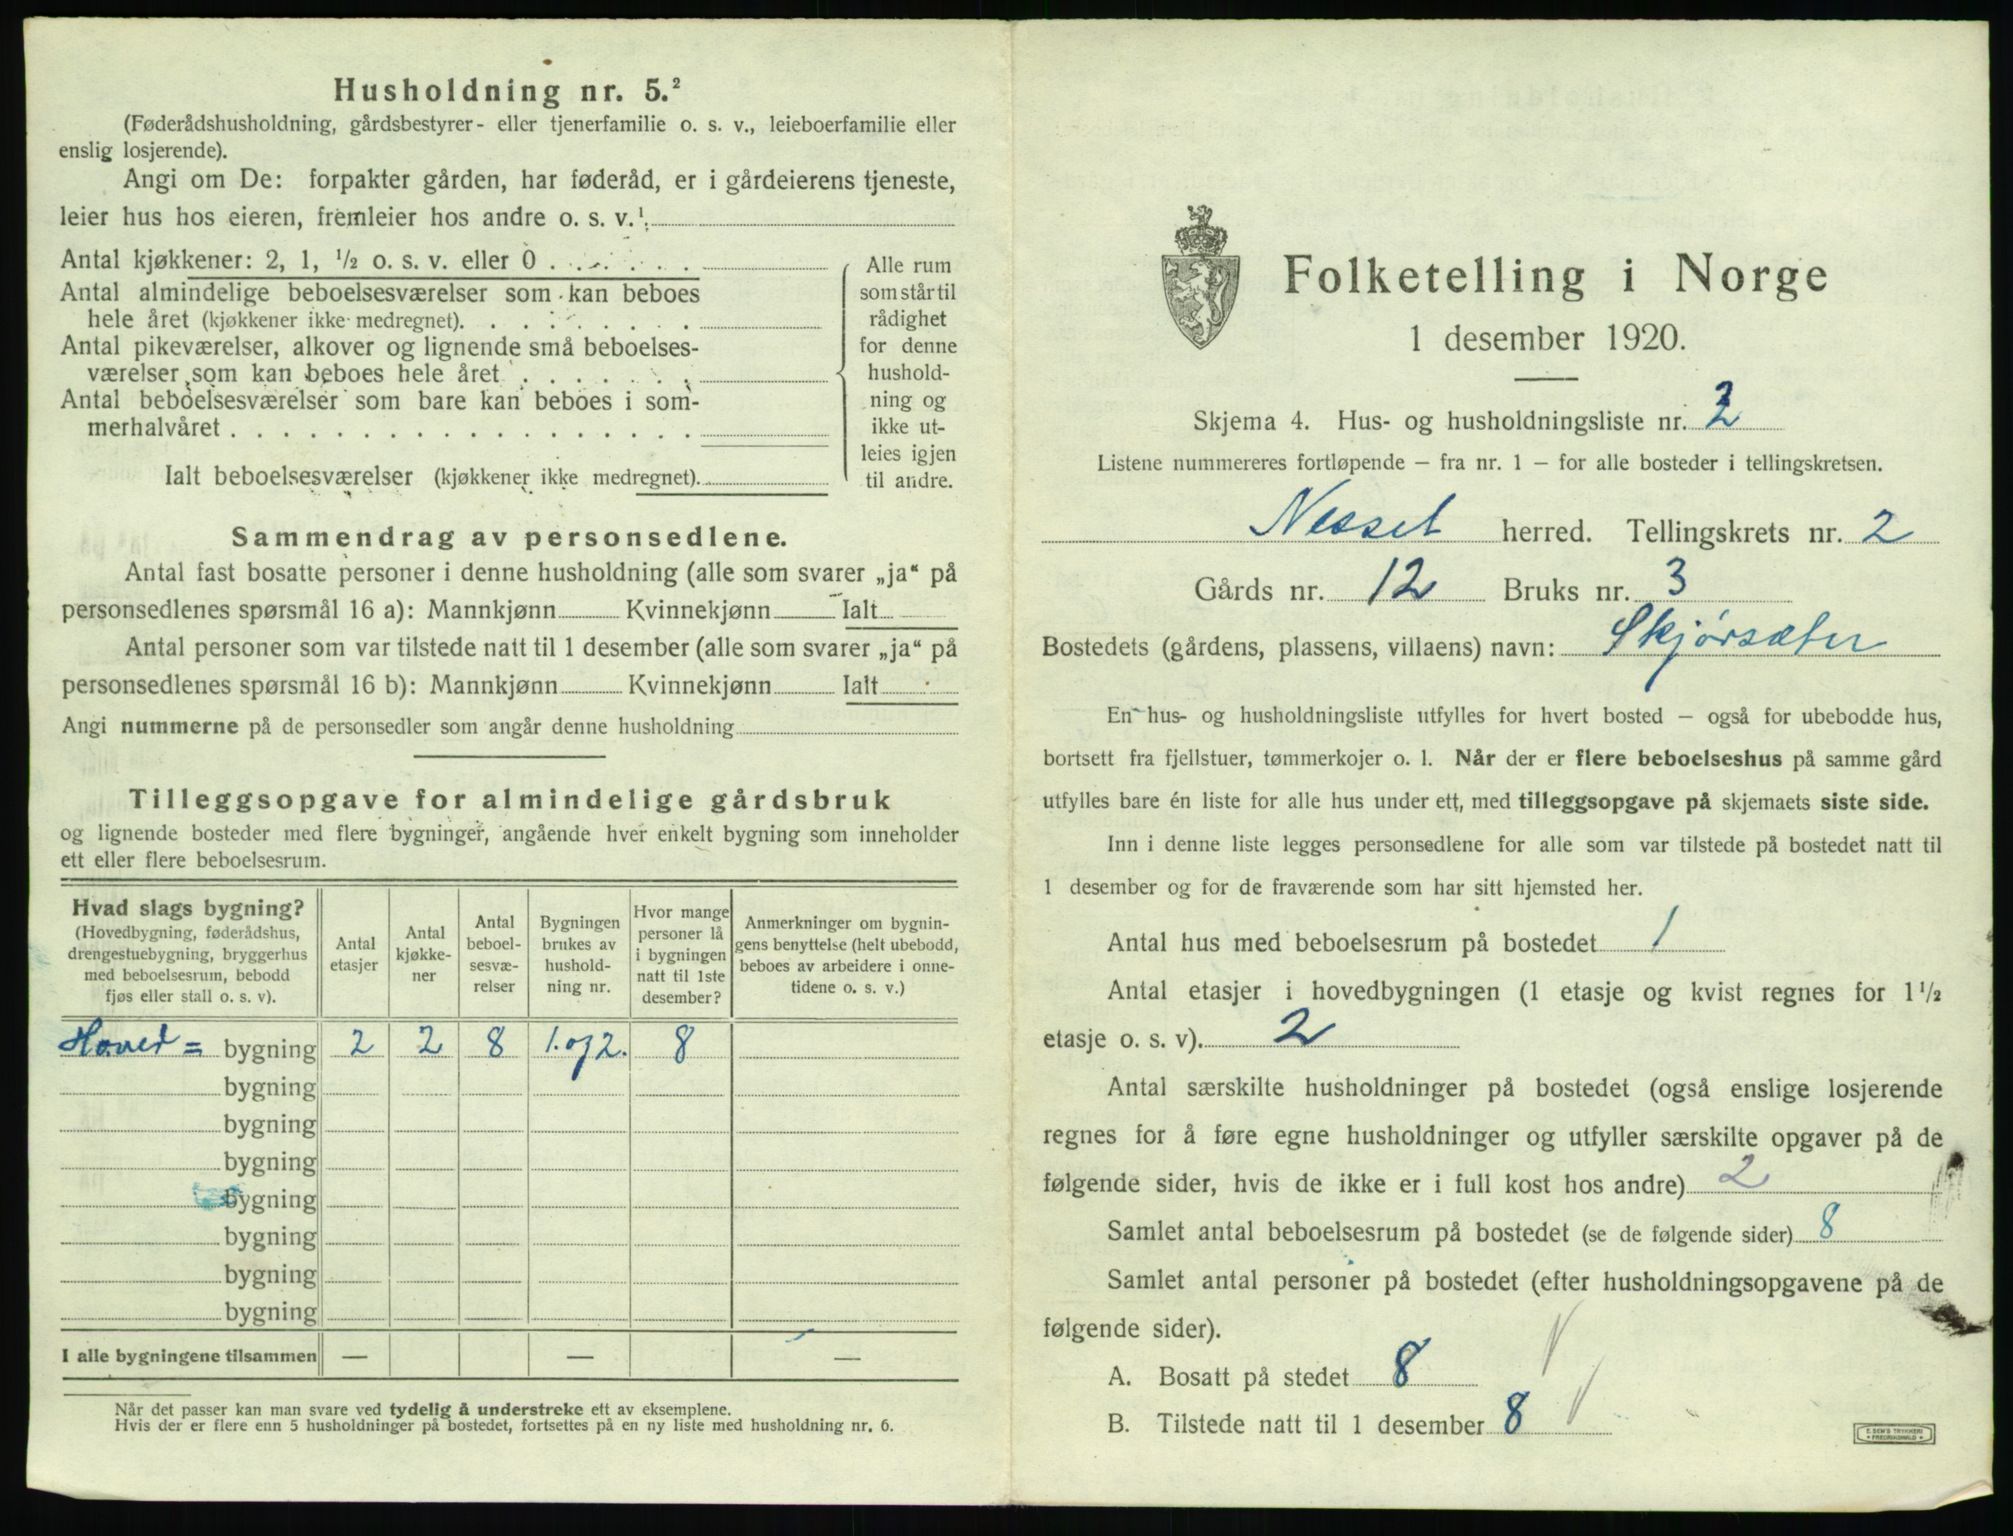 Husholdning nr. 5.²
(Føderådshusholdning, gårdsbestyrer- eller tjenerfamilie o. s. v., leieboerfamilie eller
enslig losjerende).
Angi om De: forpakter gården, har føderåd, er i gårdeierens tjeneste,
leier hus hos eieren, fremleier hos andre o. s. v.¹
Antal kjøkkener: 2, 1, ½ o. s. v. eller 0
Antal almindelige beboelsesværelser som kan beboes
hele året (kjøkkener ikke medregnet).
Antal pikeværelser, alkover og lignende små beboelses-
værelser som kan beboes hele året
Antal beboelsesværelser som bare kan beboes i som-
merhalvåret
Ialt beboelsesværelser (kjøkkener ikke medregnet).
Alle rum
som står til
rådighet
for denne
hushold-
ning og
ikke ut-
leies igjen
til andre.
Sammendrag av personsedlene.
Antal fast bosatte personer i denne husholdning (alle som svarer „ja“ på
personsedlenes spørsmål 16 a): Mannkjønn Kvinnekjønn Ialt
Antal personer som var tilstede natt til 1 desember (alle som svarer „ja“ på
personsedlenes spørsmål 16 b): Mannkjønn Kvinnekjønn Ialt
Angi nummerne på de personsedler som angår denne husholdning
Tilleggsopgave for almindelige gårdsbruk
og lignende bosteder med flere bygninger, angående hver enkelt bygning som inneholder
ett eller flere beboelsesrum.
Hvad slags bygning?
(Hovedbygning, føderådshus,
drengestuebygning, bryggerhus
med beboelsesrum, bebodd
fjøs eller stall o. s. v).
Antal
etasjer
Antal
kjøkke-
ner
Antal
beboel-
sesvæ-
relser
Bygningen
brukes av
hushold-
ning nr.
Hvor mange
personer lå
i bygningen
natt til 1ste
desember?
Anmerkninger om bygnin-
gens benyttelse (helt ubebodd,
beboes av arbeidere i onne-
tidene o. s. v.)
Hoved= bygning 2 2 8 1. og 2. 8
bygning
bygning
bygning
bygning
bygning
bygning
bygning
I alle bygningene tilsammen — — —
Når det passer kan man svare ved tydelig å understreke ett av eksemplene.
Hvis der er flere enn 5 husholdninger på bostedet, fortsettes på en ny liste med husholdning nr. 6.
Folketelling i Norge
1 desember 1920.
Skjema 4. Hus- og husholdningsliste nr.
Listene nummereres fortløpende – fra nr. 1 – for alle bosteder i tellingskretsen.
Nesset herred. Tellingskrets nr. 2
Gårds nr. 12 Bruks nr. 3
Bostedets (gårdens, plassens, villaens) navn: Skjørsæter
En hus- og husholdningsliste utfylles for hvert bosted – også for ubebodde hus,
bortsett fra fjellstuer, tømmerkojer o. l. Når der er flere beboelseshus på samme gård
utfylles bare én liste for alle hus under ett, med tilleggsopgave på skjemaets siste side.
Inn i denne liste legges personsedlene for alle som var tilstede på bostedet natt til
1 desember og for de fraværende som har sitt hjemsted her.
Antal hus med beboelsesrum på bostedet 1
Antal etasjer i hovedbygningen (1 etasje og kvist regnes for 1½
etasje o. s. v). 2
Antal særskilte husholdninger på bostedet (også enslige losjerende
regnes for å føre egne husholdninger og utfyller særskilte opgaver på de
følgende sider, hvis de ikke er i full kost hos andre) 2
Samlet antal beboelsesrum på bostedet (se de følgende sider) 8
Samlet antal personer på bostedet (efter husholdningsopgavene på de
følgende sider).
A. Bosatt på stedet 8
B. Tilstede natt til 1 desember 8
E. SEM'S TRYKKERI
FREDRIKSHALD